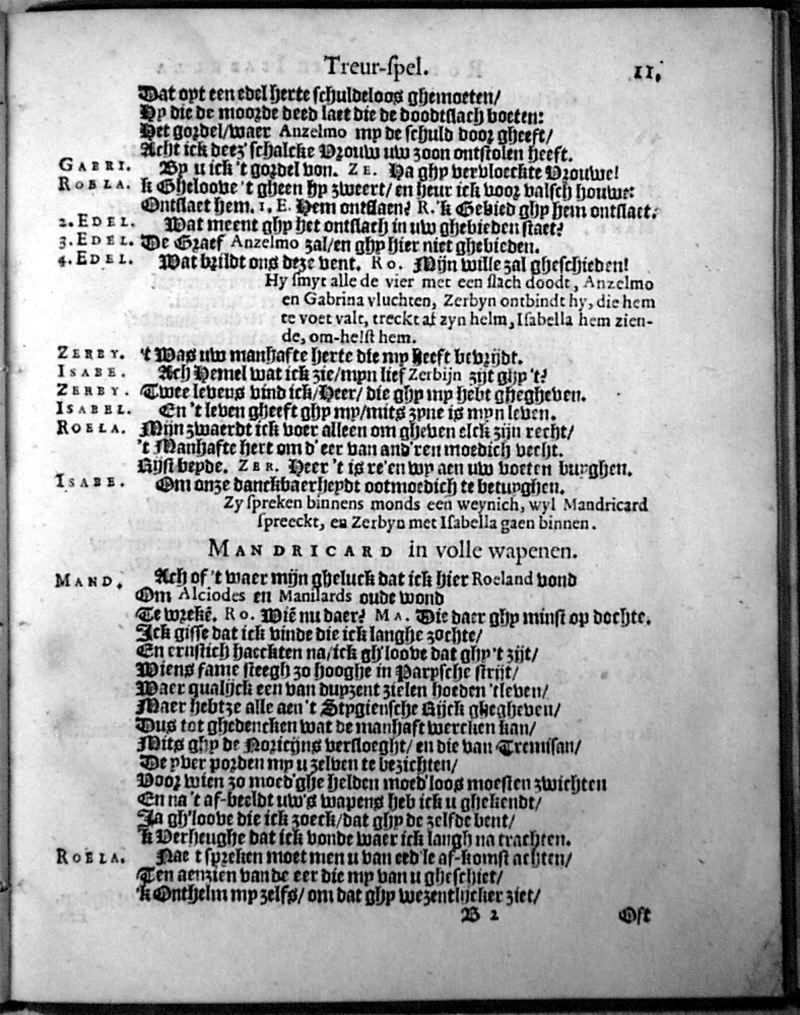 Treur-spel. 11.
Dat opt een edel herte schuldeloos ghemoeten/
Hy die de moorde deed laet die de doodtslach boeten:
Het gordel/waer Anzelmo my de schuld door gheeft/
Acht ick deez' schalcke Vrouw uw zoon ontstolen heeft.
GABRI. By u ick 't gordel von. ZE. Ha ghy vervloeckte Vrouwe!
ROELA. k Gheloove 't gheen hy zweert/ en heur ick voor valsch houwe:
Ontslaet hem. 1. E. Hem ontslaen? R. 'k Gebied ghy hem ontslaet.
2. EDEL. Wat meent ghy het ontslach in uw ghebieden staet?
3. EDEL. De Graef Anzelmo zal/en ghy hier niet ghebieden.
4. EDEL. Wat brildt ons deze vent. RO. Mijn wille zal gheschieden!
Hy smyt alle de vier met een slach doodt, Anzelmo
en Gabrina vluchten, Zerbyn ontbindt hy, die hem
te voet valt, treckt af zyn helm, Isabella hem zien-
de, om-helst hem.
ZERBY. 't Was uw manhafte herte die my heeft bevrijdt.
ISABE. Ach Hemel wat ick zie/mijn lief Zerbijn zijt ghy 't?
ZERBY. Twee levens vind ick/Heer/ die ghy my hebt ghegheven.
ISABEL. En 't leven gheeft ghy my/mits zyne is myn leven.
ROELA. Mijn zwaerdt ick voer alleen om gheven elck zijn recht/
't Manhafte hert om d'eer van and'ren moedich vecht.
Rijst beyde. ZER. Heer 't is re'en wy aen uw voeten buyghen.
ISABE. Om onze danckbaerheydt ootmoedich te betuyghen.
Zy spreken binnens monds een weynich, wyl Mandricard
spreeckt, en Zerbyn met Isabella gaen binnen.
MANDRICARD in volle wapenen.
MAND. Ach of 't waer mijn gheluck dat ick hier Roeland vond
Om Alciodes en Manilards oude wond
Te wrekē. RO. Wiē nu daer? MA. Die daer ghy minst op dochte.
Ick gisse dat ick vinde die ick langhe zochte/
En ernstich haeckten na/ick gh'loove dat ghy 't zijt/
Wiens fame steegh zo hooghe in Parysche strijt/
Waer qualijck een van duyzent zielen hoeden 'tleven/
Maer hebtze alle aen 't Stygiensche Rijck ghegheven/
Dus tot ghedencken wat de manhaft wercken kan/
Mits ghy de Noricijns versloeght/ en die van Tremisan/
De yver porden my u zelven te bezichten/
Voor wien zo moed'ghe helden moed'loos moesten zwichten
En na 't af-beeldt uw's wapens heb ick u ghekendt/
Ja gh'loove die ick zoeck/dat ghy de zelfde bent/
'k Verheughe dat ick vonde waer ick langh na trachten.
ROELA. Nae t spreken moet men u van eed'le af-komst achten/
Ten aenzien van de eer die my van u gheschiet/
'k Onthelm my zelfs/ om dat ghy wezentlijcker ziet/
B 2 Oft